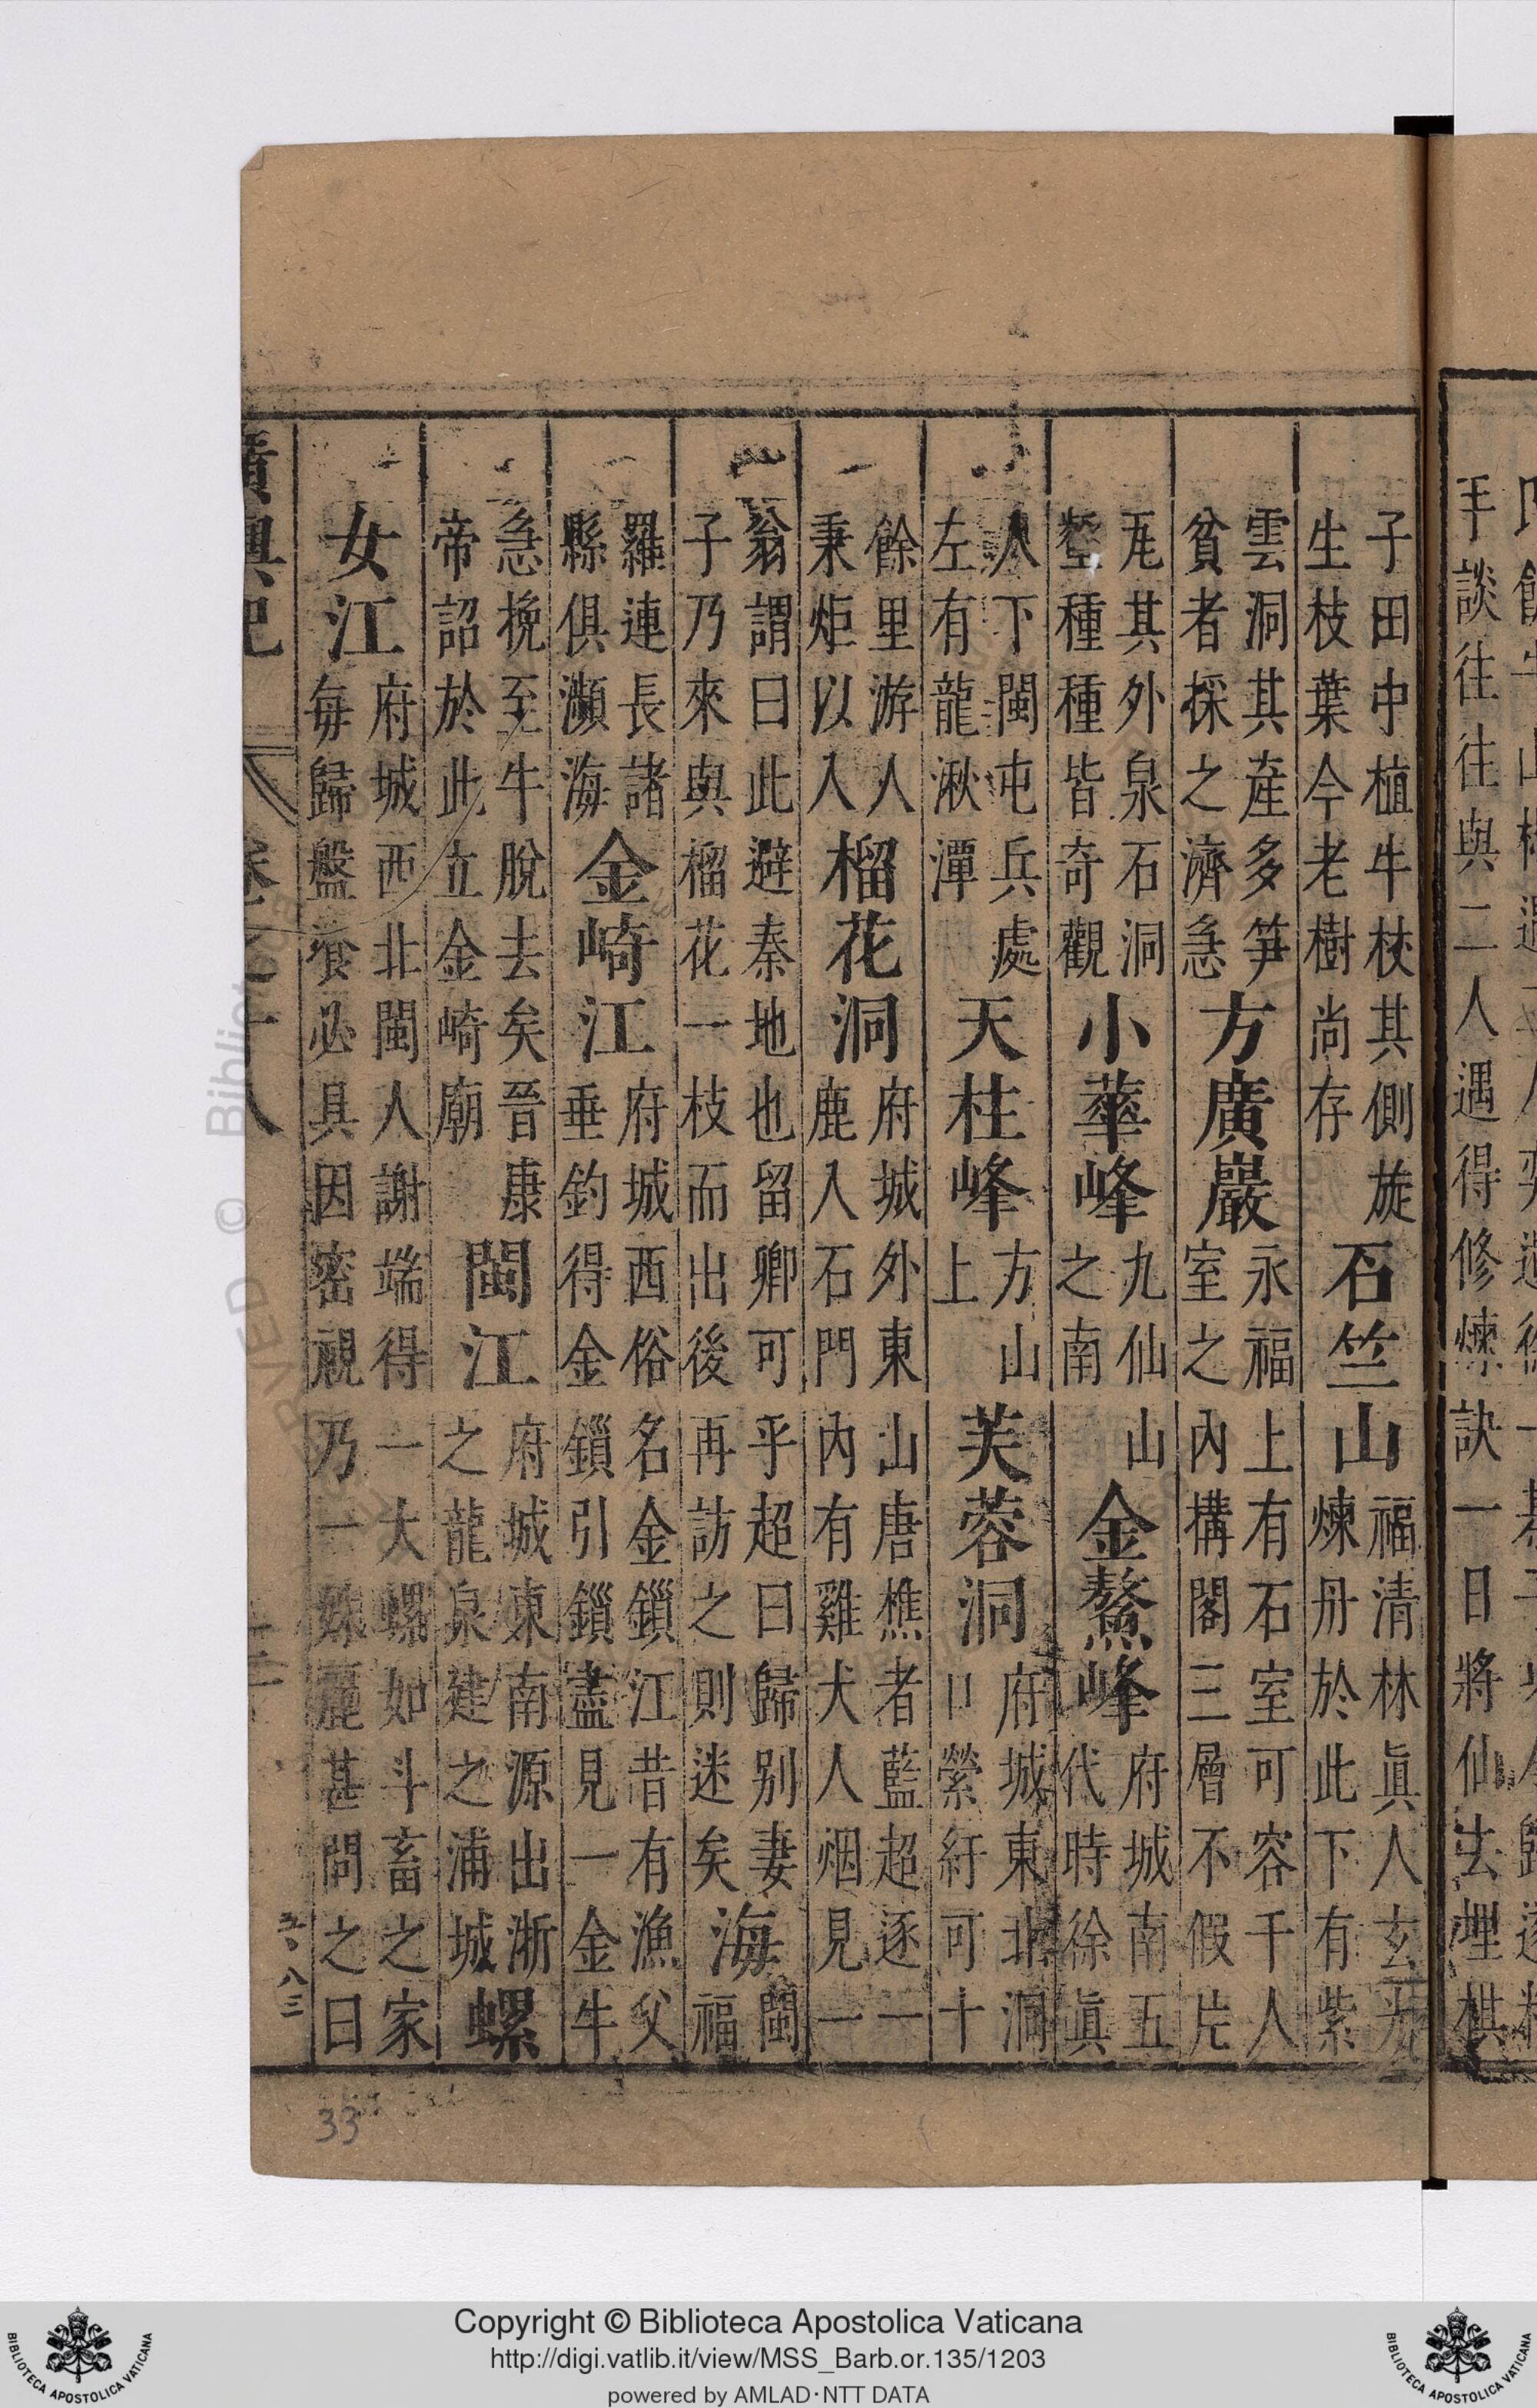 手談往往與二人遇得修煉訣一日將仙去埋棋
子田中植牛杖其側旋
生枝葉今老樹尚存
石竺山
福清林眞人玄光
煉丹於此下有紫
雲洞其產多笋
貧者採之濟急
方廣巖
永福上有石室可容千人
室之內構閣三層不假片
瓦其外泉石洞
壑種種皆奇觀
小華峰
九仙山
之南
金鰲峰
府城南五
代時徐眞
人下閩屯兵處
左有龍湫潭
天柱峰
方山
上
芙蓉洞
府城東北洞
口縈紆可十
餘里游人
秉炬以入
榴花洞
府城外東山唐樵者藍超逐一
鹿入石門內有雞犬人烟見一
翁謂曰此避秦地也留卿可乎超曰歸別妻
子乃來與榴花一枝而出後再訪之則迷矣
海
閩
福
羅連長諸
縣俱瀕海
金崎江
府城西俗名金鎖江昔有漁父
垂釣得金鎖引鎖盡見一金牛
急挽至牛脫去矣晉康
帝詔於此立金崎廟
閩江
府城東南源出浙
之龍泉建之浦城
螺
女江
府城西北閩人謝端得一大螺如斗畜之家
每歸盤飱必具因密視乃一姝麗甚問之曰
廣輿記
卷之十八
五八三
33
Copyright © Biblioteca Apostolica Vaticana
http://digi.vatlib.it/view/MSS_Barb.or.135/1203
powered by AMLAD・NTT DATA
BIBLIOTECA APOSTOLICA VATICANA
BIBLIOTECA APOSTOLICA VATICANA